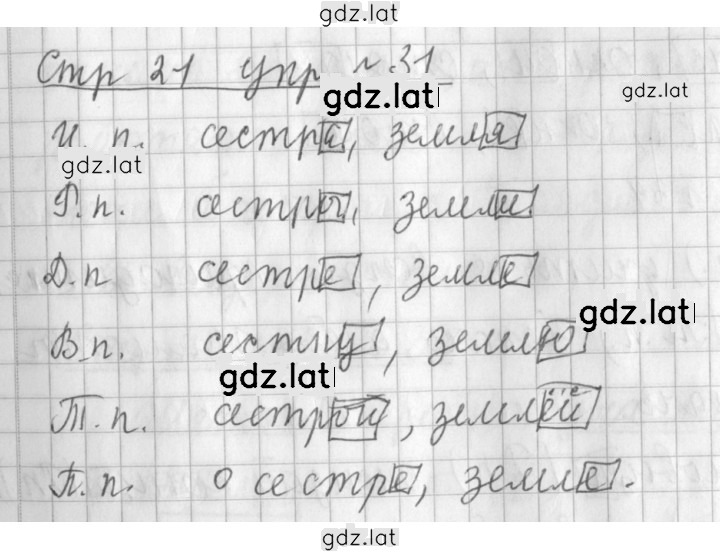 gdz.lat
Стр 21 упр №31
gdz.lat
gdz.lat
И. п. сестра, земля
gdz.lat
Р. п. сестры, земли
Д. п сестре, земле
gdz.lat
В. п. сестру, землю
gdz.lat
Т. п. сестрой, землёй
П. п. о сестре, земле.
gdz.lat